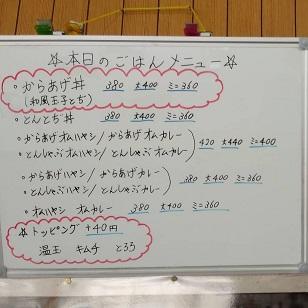 ☆本日のごはんメニュー☆
・からあげ丼 380 大400 ミニ=360
(和風玉子とじ)
・とんとぢ丼 380 大400 ミニ=360
・からあげオムハヤシ/からあげオムカレー
・とんしゃぶオムハヤシ/とんしゃぶオムカレー 420 大440 ミニ=400
・からあげハヤシ/からあげカレー
・とんしゃぶハヤシ/とんしゃぶカレー 380 大400 ミニ=360
・オムハヤシ オムカレー 380 大400 ミニ=360
☆トッピング +40円
温玉 キムチ とろろ